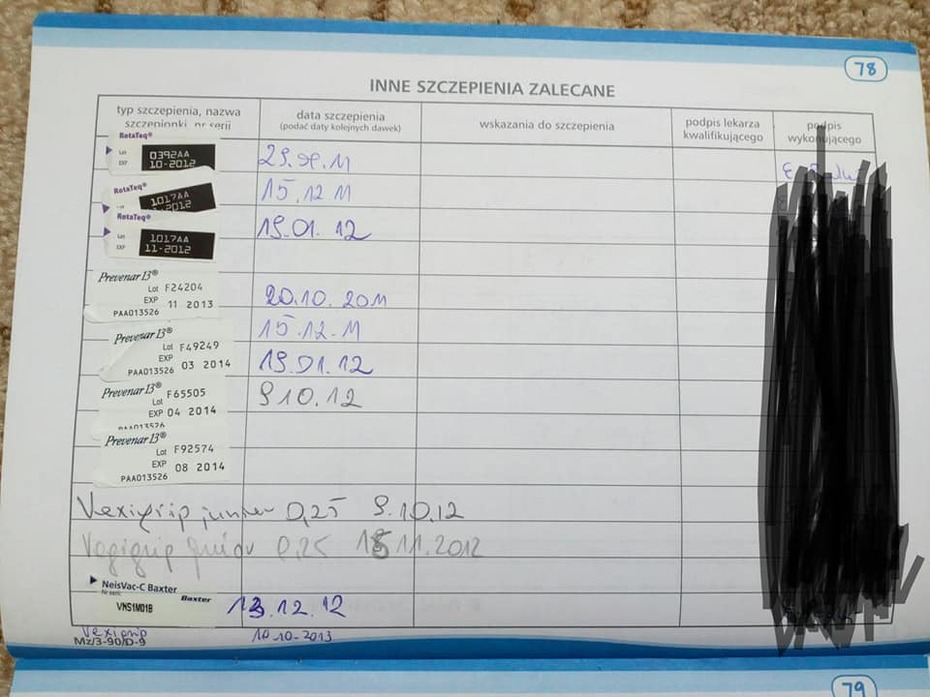 78
INNE SZCZEPIENIA ZALECANE
typ szczepienia, nazwa szczepionki, nr serii
data szczepienia (podać daty kolejnych dawek)
wskazania do szczepienia
podpis lekarza kwalifikującego
podpis wykonującego
RotaTeq®
Lot 0392AA
EXP 10-2012
15.12.11
RotaTeq®
1017AA
-2012
19.01.12
RotaTeq®
Lot 1017AA
EXP 11-2012
Prevenar 13®
Lot F24204
EXP 11 2013
PAA013526
20.10.2011
Prevenar 13®
Lot F49249
EXP 03 2014
PAA013526
15.12.11
19.01.12
Prevenar 13®
Lot F65505
EXP 04 2014
9 10.12
Prevenar 13®
Lot F92574
EXP 08 2014
PAA013526
0,25 9.10.12
0,25 11.2012
NeisVac-C Baxter
Nr serii:
VNS1M01B
Baxter
13.12.12
10.10-2013
Mz/3-90/D-9
79